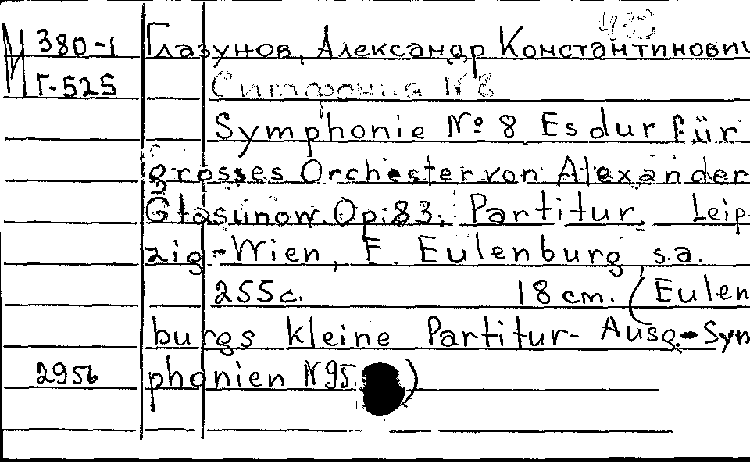 430
М 380-1 Глазунов, Александр Константинович
Г-525 Симфония №8
Symphonie № 8 Es dur für
grosses Orchester von Alexander
Glasunow. Op. 83. Partitur. Leip-
zig-Wien, E. Eulenburg s.a.
255 с. 18 cm. (Eulen
burgs kleine Partitur-Ausg.-Sym
2956 phonien N 95.)